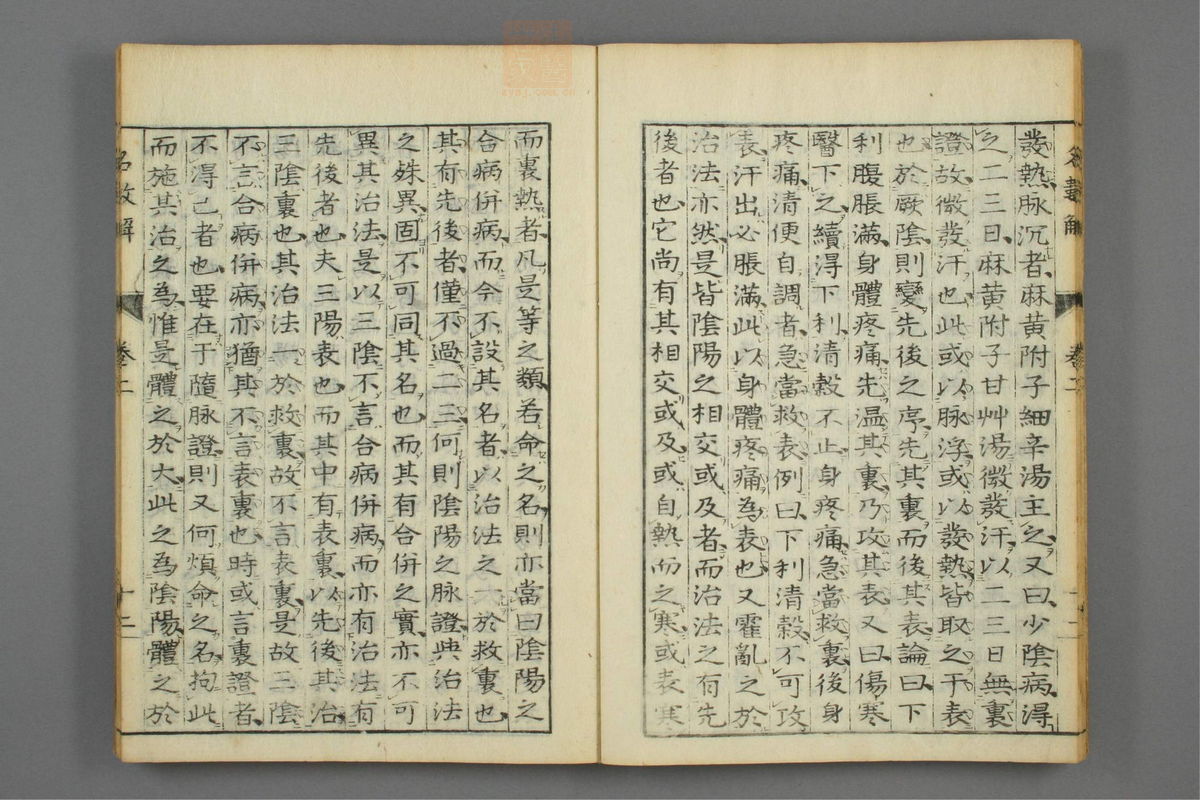 發熱脉沉者麻黄附子細辛湯主之又曰少陰病得
之二三日麻黄附子甘艸湯微發汗以二三日無裏
證故微發汗也此或以脉浮或以發熱皆取之于表
也於厥陰則變先後之序先其裏而後其表論曰下
利腹脹滿身體疼痛先温其裏乃攻其表又曰傷寒
醫下之續得下利清穀不止身疼痛急當救裏後身
疼痛清便自調者急當救表例曰下利清穀不可攻
表汗出必脹滿此以身體疼痛為表也又霍亂之於
治法亦然是皆陰陽之相交或及者而治法之有先
後者也它尚有其相交或及或自熱而之寒或表寒
而裏熱者凡是等之類若命之名則亦當曰陰陽之
合病併病而今不設其名者以治法之一於救裏也
其有先後者僅不過二三何則陰陽之脉證與治法
之殊異固不可同其名也而其有合併之實亦不可
異其治法是以三陰不言合病併病而亦有治法有
先後者也夫三陽表也而其中有表裏以先後其治
三陰裏也其治法一於救裏故不言表裏是故三陰
不言合病併病亦猶其不言表裏也時或言裏證者
不得已者也要在于隨脉證則又何煩命之名拘此
而施其治之為惟是體之於大此之為陰陽體之於
名數解
卷二
十二